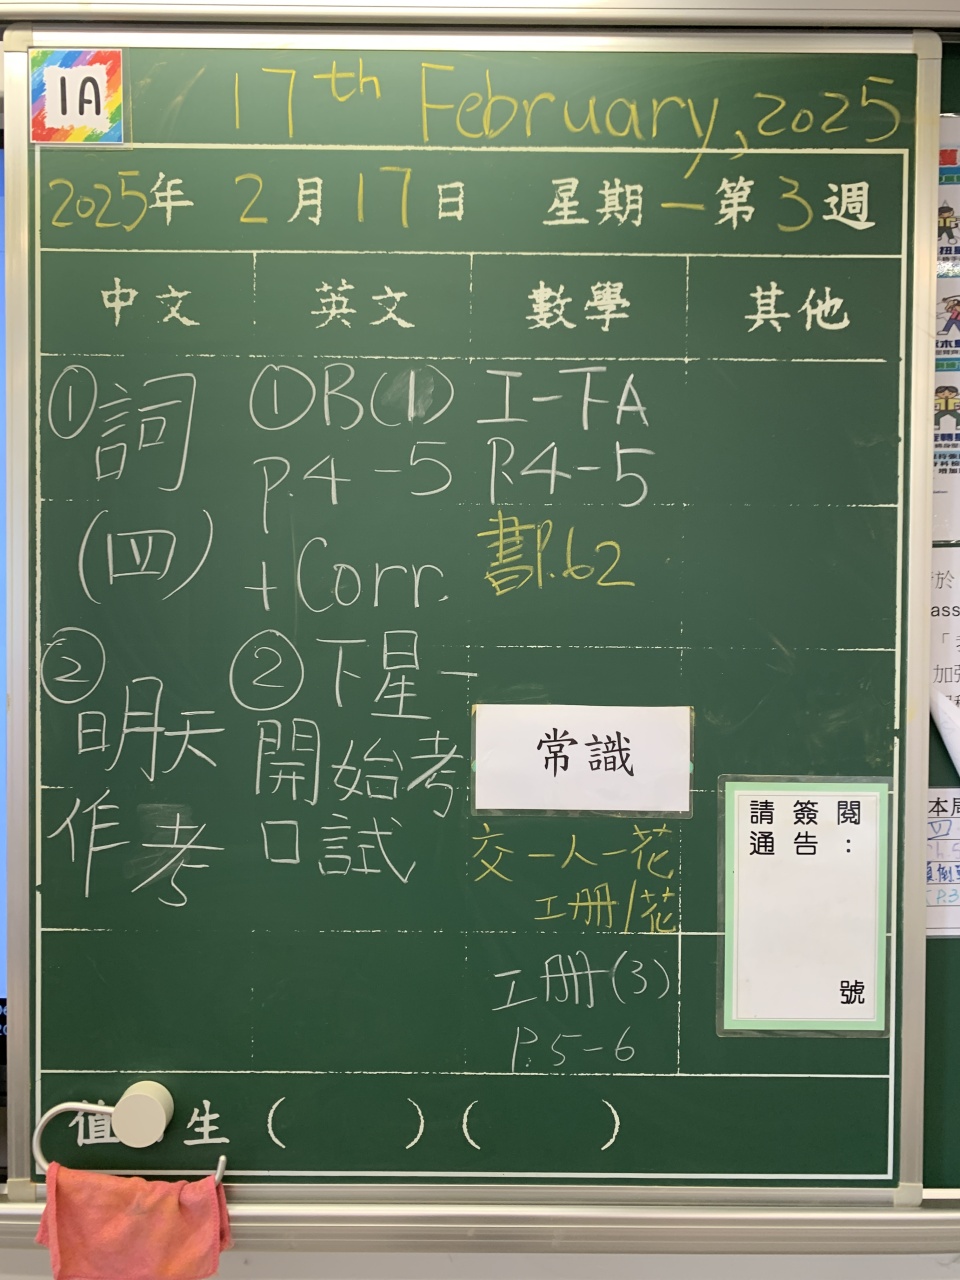 1A
17th February, 2025
2025年 2月17日 星期一 第3週
中文 英文 數學 其他
①詞
(四)
②
明天
作考
①B(1)
P.4-5
+Corr.
②下星一
開始考
口試
工-下A
P.4-5
書P.62
常識
交一人一花
工冊/花
工冊(3)
P.5-6
請簽閱
通告：
號
值 生 ( ) ( )
本周